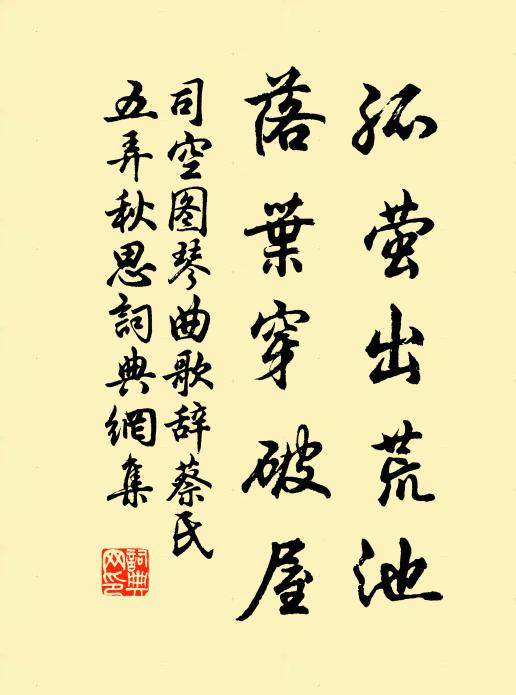 孤萤出荒池
落葉穿破屋
司空图琴曲歌辞蔡氏
五弄秋思詞典網集
詞典
网印